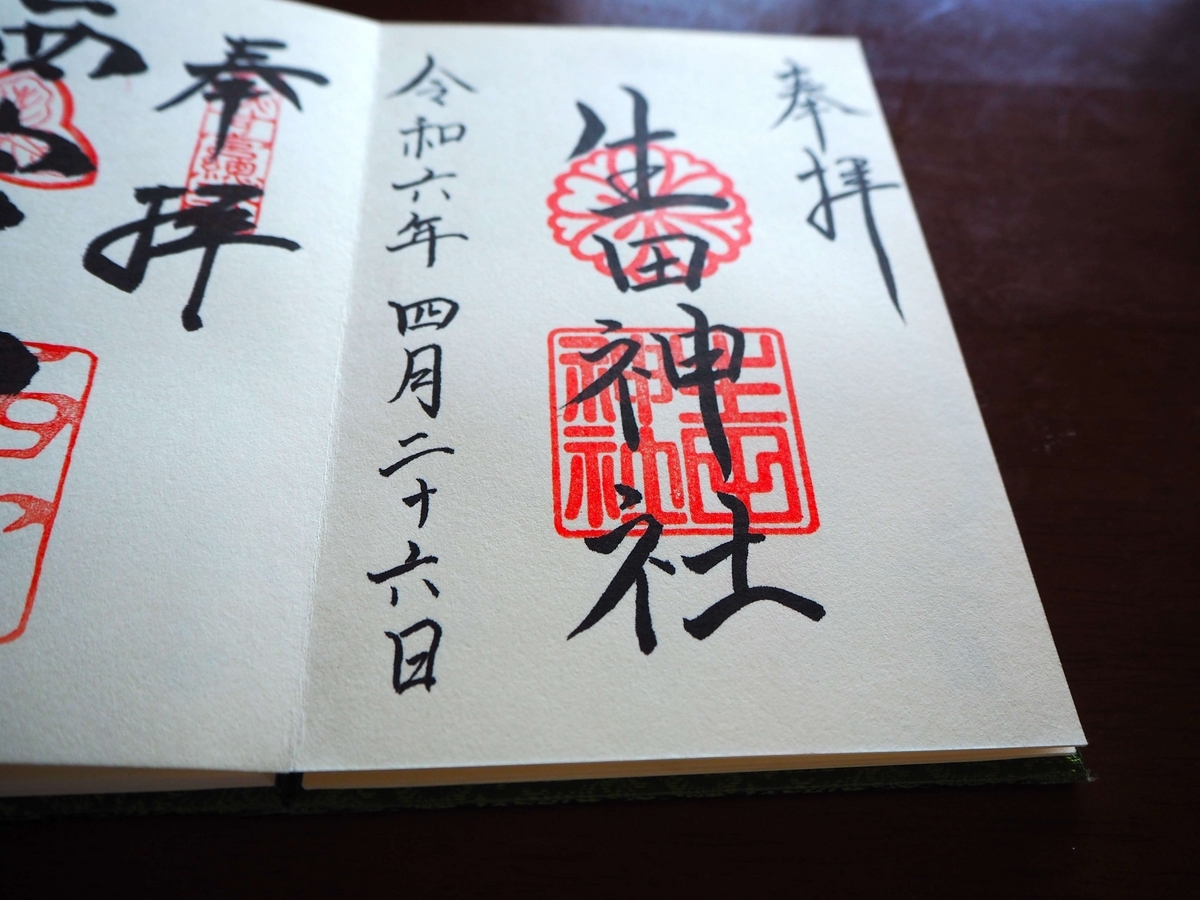 奉拝
生田神社
生田神社
令和六年 四月二十六日
奉拝